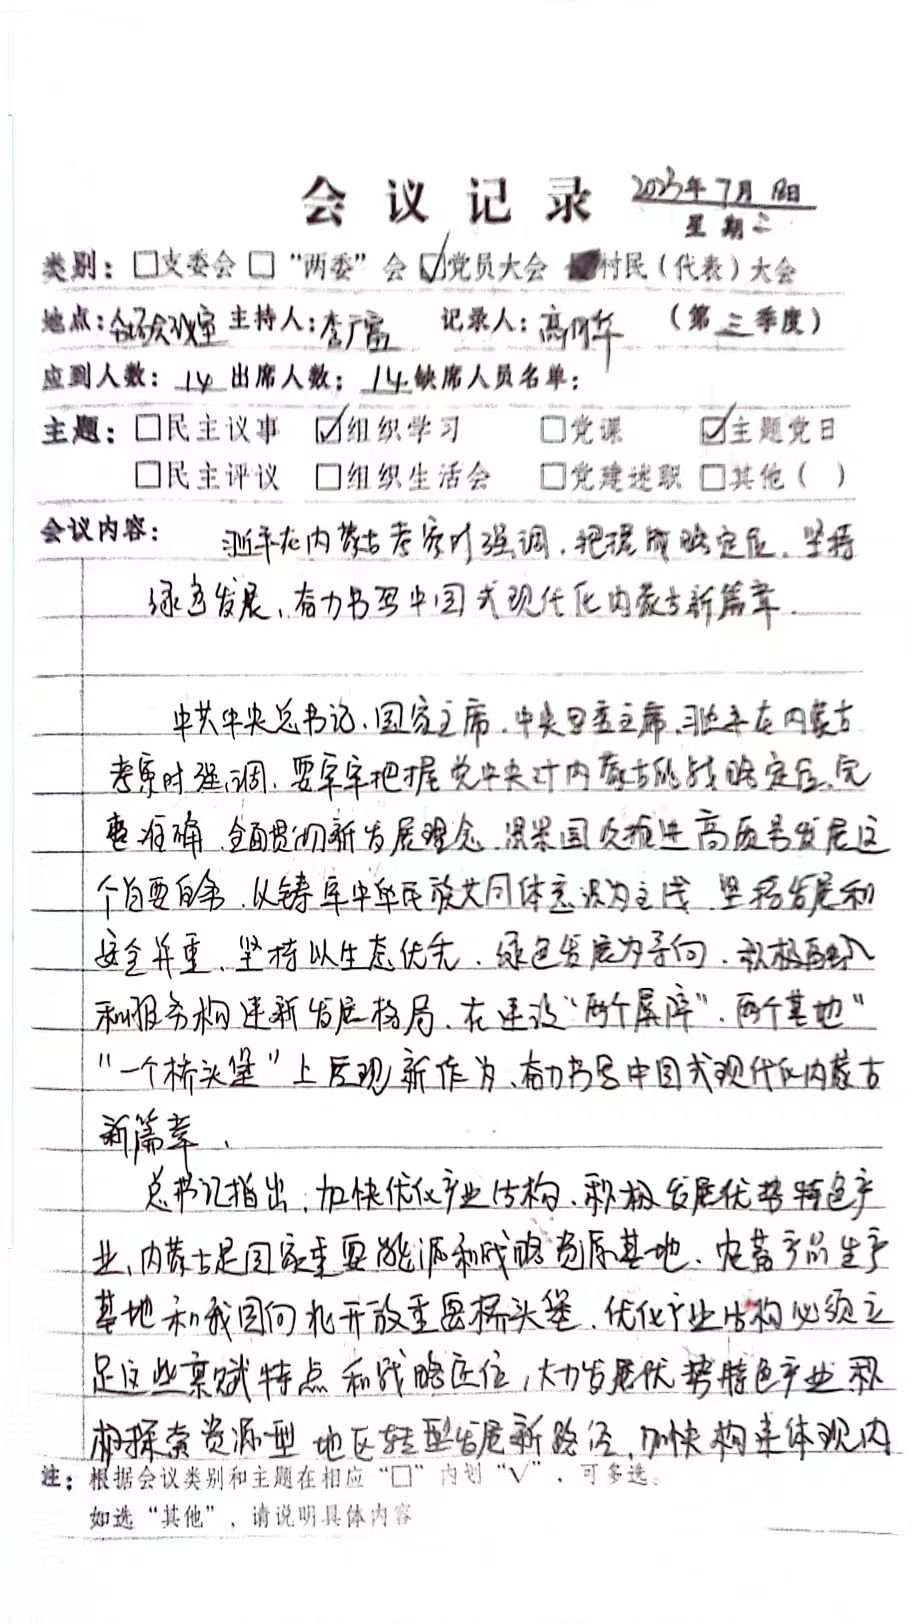 会议记录 2023年7月18日
星期二
类别：□支委会 □“两委”会 ☑党员大会 村民（代表）大会
地点：会议室 主持人：李广富 记录人：高 华 （第三季度）
应到人数：14 出席人数：14 缺席人员名单：
主题：□民主议事 ☑组织学习 □党课 ☑主题党日
□民主评议 □组织生活会 □党建述职 □其他（ ）
会议内容： 习近平在内蒙古考察时强调，把握战略定位、坚持
绿色发展、奋力书写中国式现代化内蒙古新篇章.
中共中央总书记、国家主席、中央军委主席习近平在内蒙古
考察时强调，要牢牢把握党中央对内蒙古的战略定位，完
整准确 全面贯彻新发展理念 紧紧围绕推进高质量发展这
个首要任务、以铸牢中华民族共同体意识为主线 坚持发展和
安全并重，坚持以生态优先、绿色发展为导向，积极融入
和服务构建新发展格局、在建设“两个屏障”、两个基地”
“一个桥头堡”上展现新作为、奋力书写中国式现代化内蒙古
新篇章、
总书记指出，加快优化产业结构、积极发展优势特色产
业、内蒙古是国家重要能源和战略资源基地、农畜产品生产
基地和我国向北开放重要桥头堡，优化产业结构必须立
足这些禀赋特点和战略定位，大力发展优势特色产业 积
极探索资源型地区转型发展新路径，加快构建体现内
注：根据会议类别和主题在相应“□”内划“√”，可多选。
如选“其他”，请说明具体内容